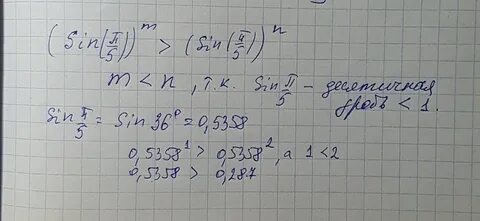 (Sin(π/5))^m > (Sin(π/5))^n
m < n, т.к. Sin π/5 – десятичная
дробь < 1.
Sin π/5 = Sin 36° = 0,5358
0,5358^1 > 0,5358^2, а 1 < 2
0,5358 > 0,287